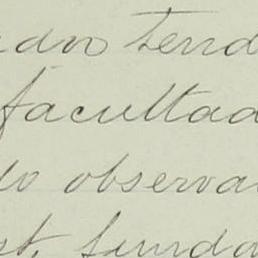 tend
facultad
do observa
st, funda